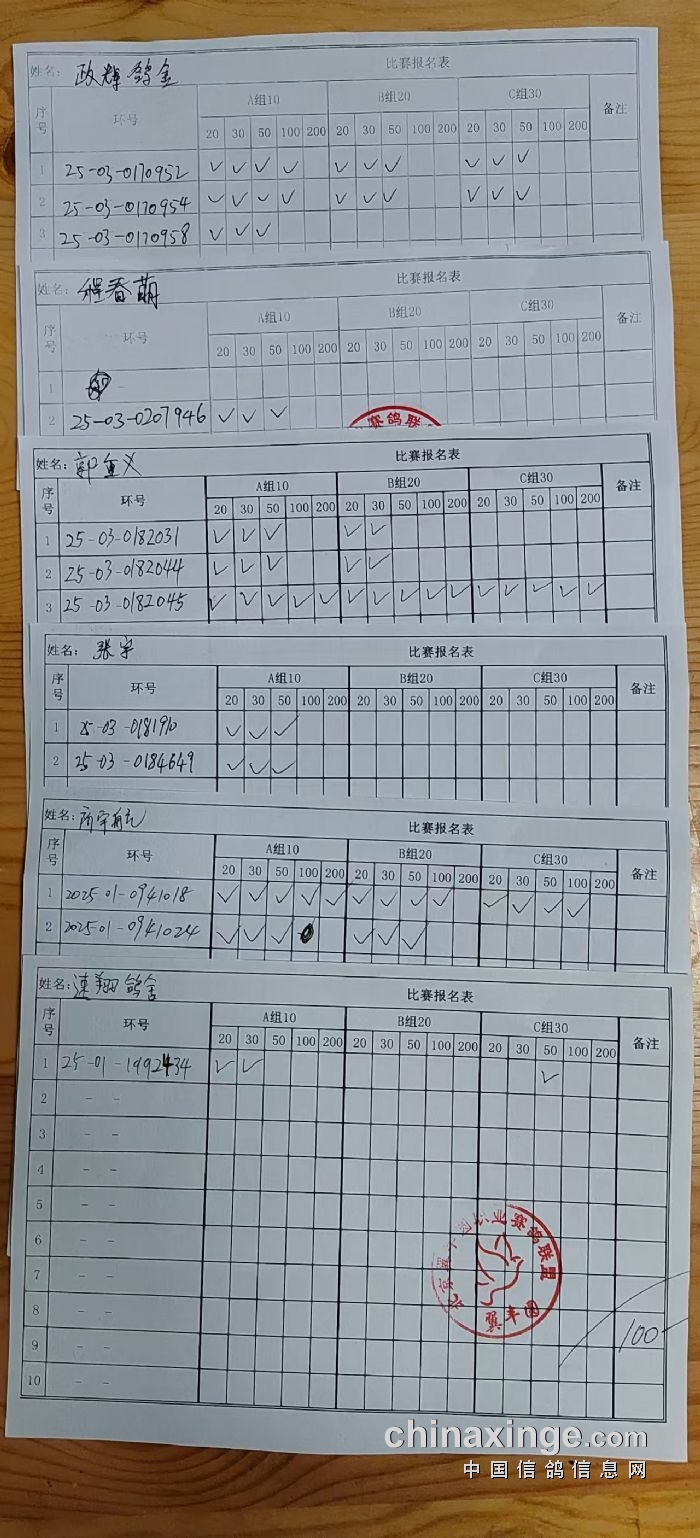 姓名: 政辉鸽舍 比赛报名表
序号 环号 A组10 B组20 C组30 备注
20 30 50 100 200 20 30 50 100 200 20 30 50 100 200
1 25-03-0170952 ✓ ✓ ✓ ✓ ✓ ✓ ✓ ✓ ✓ ✓
2 25-03-0170954 ✓ ✓ ✓ ✓ ✓ ✓ ✓ ✓ ✓ ✓
3 25-03-0170958 ✓ ✓ ✓
姓名: 程春萌 比赛报名表
序号 环号 A组10 B组20 C组30 备注
20 30 50 100 200 20 30 50 100 200 20 30 50 100 200
1 -
2 25-03-0207946 ✓ ✓ ✓
赛鸽联
姓名: 郭重义 比赛报名表
序号 环号 A组10 B组20 C组30 备注
20 30 50 100 200 20 30 50 100 200 20 30 50 100 200
1 25-03-0182031 ✓ ✓ ✓ ✓ ✓
2 25-03-0182044 ✓ ✓ ✓ ✓ ✓
3 25-03-0182045 ✓ ✓ ✓ ✓ ✓ ✓ ✓ ✓ ✓ ✓ ✓ ✓ ✓ ✓ ✓
姓名: 张宇 比赛报名表
序号 环号 A组10 B组20 C组30 备注
20 30 50 100 200 20 30 50 100 200 20 30 50 100 200
1 25-03-0181910 ✓ ✓ ✓
2 25-03-0184649 ✓ ✓ ✓
姓名: 比赛报名表
序号 环号 A组10 B组20 C组30 备注
20 30 50 100 200 20 30 50 100 200 20 30 50 100 200
1 2025-01-0941018 ✓ ✓ ✓ ✓ ✓ ✓ ✓ ✓ ✓ ✓ ✓ ✓ ✓
2 2025-01-0941024 ✓ ✓ ✓ ✓ ✓ ✓
姓名: 速翔鸽舍 比赛报名表
序号 环号 A组10 B组20 C组30 备注
20 30 50 100 200 20 30 50 100 200 20 30 50 100 200
1 25-01-1992434 ✓ ✓ ✓
2 - -
3 - -
4 - -
5 - -
6 - -
7 - -
8 - -
9 - -
10 - -
赛鸽联盟
翼丰园
100
chinaxinge.com
中国信鸽信息网